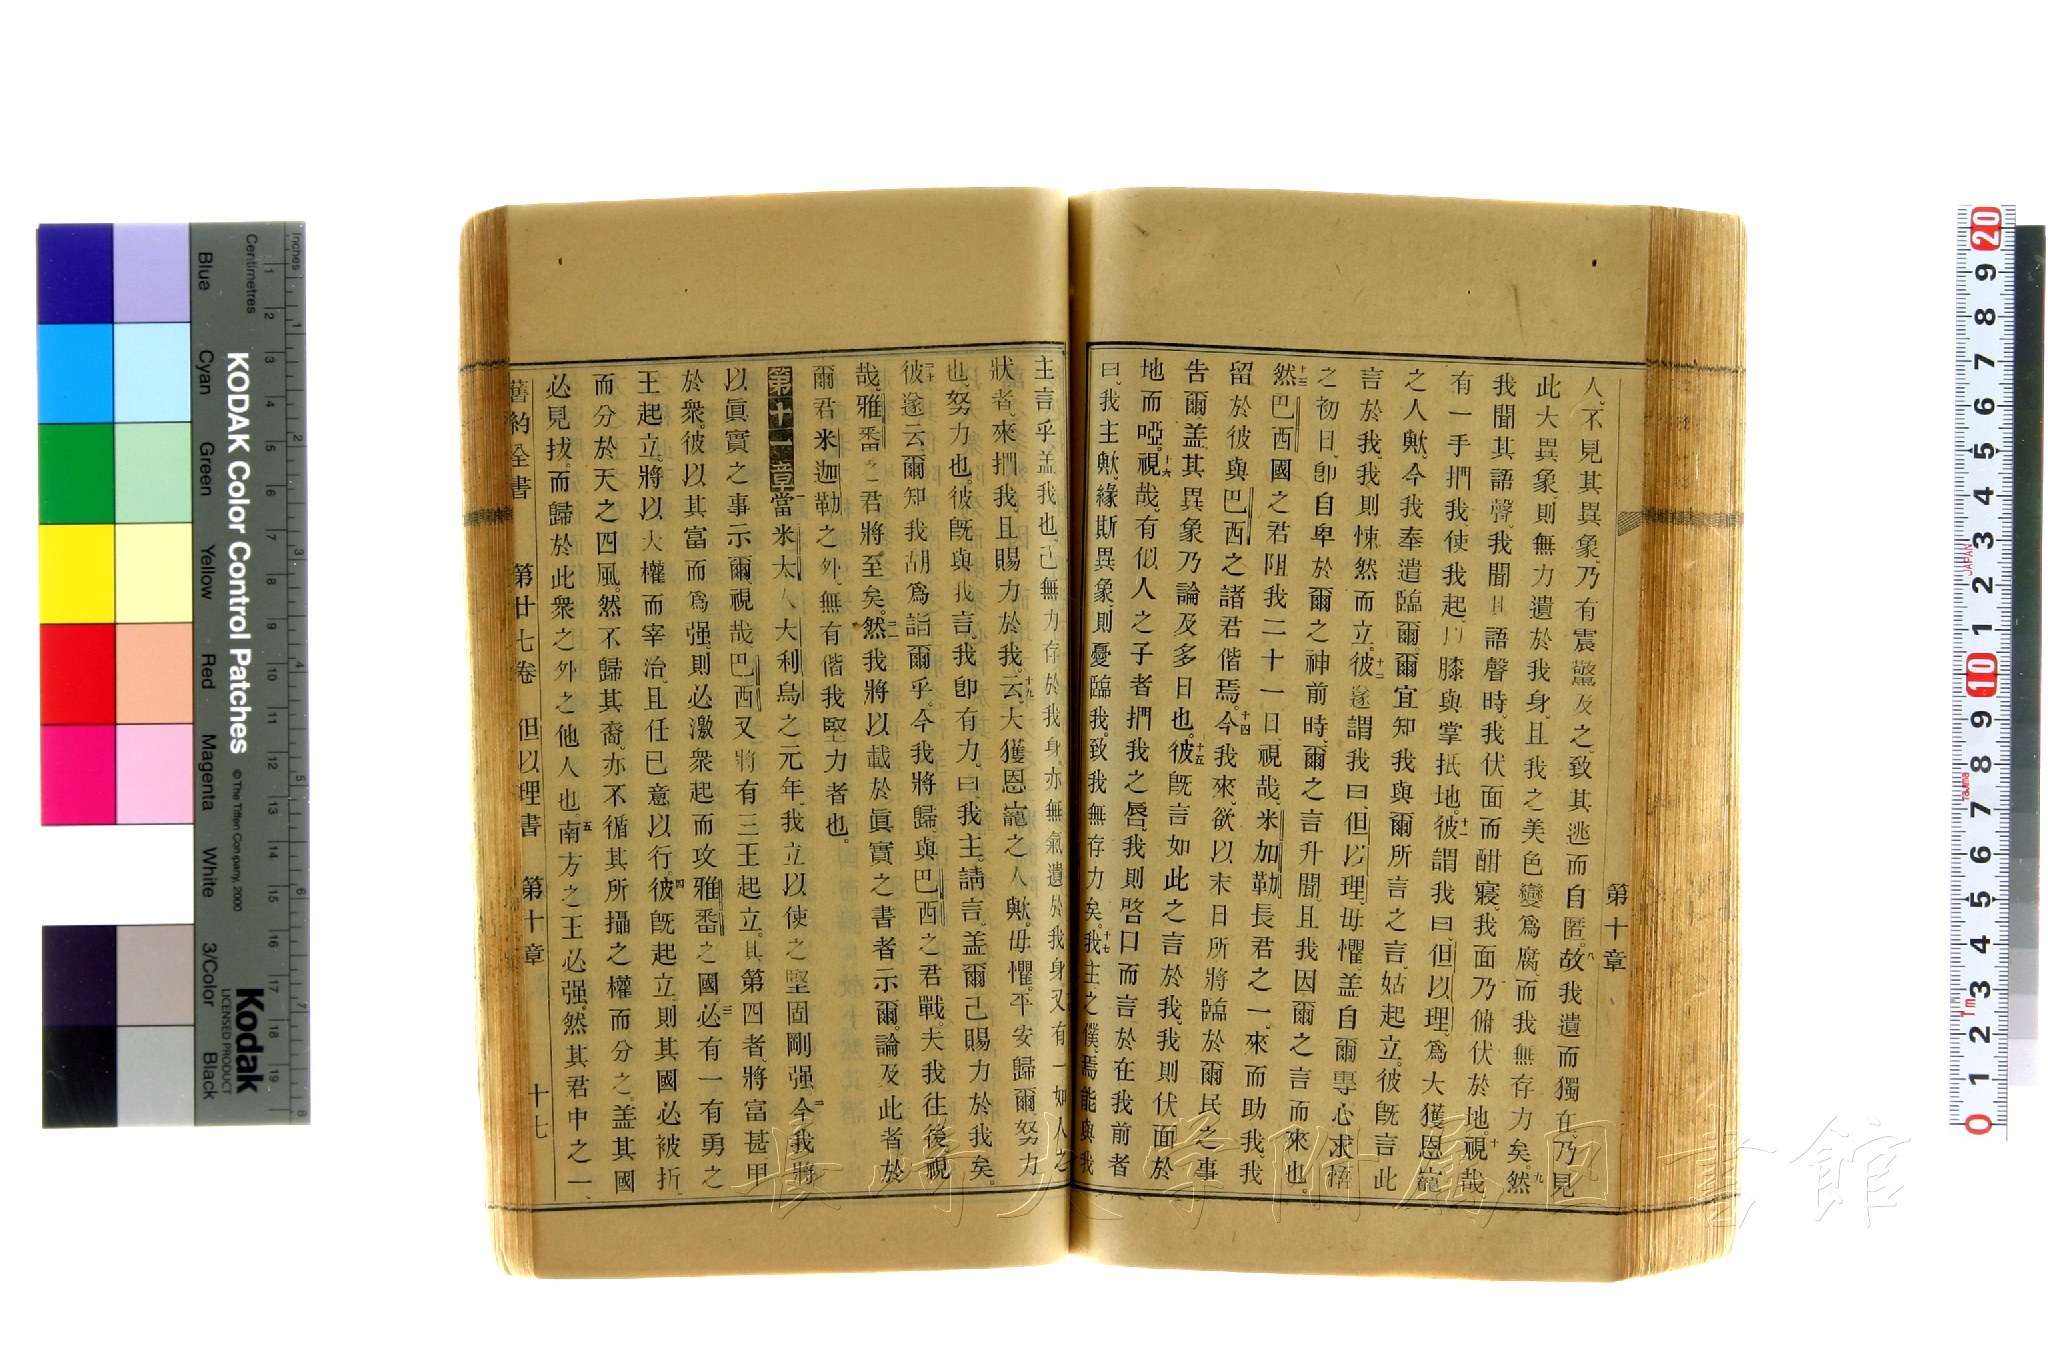 第十章
人、不見其異象、乃有震驚及之、致其逃而自匿。八故我遺而獨在、乃見
此大異象、則無力遺於我身、且我之美色變爲腐、而我無存力矣。九然
我聞其語聲、我聞其語聲時、我伏面而酣寢、我面乃俯伏於地。十視哉
有一手捫我、使我起、以膝與掌抵地。十一彼謂我曰、但以理、爲大獲恩寵
之人歟、今我奉遣臨爾、爾宜知我與爾所言之言、姑起立。彼旣言此
言於我、我則悚然而立。十二彼遂謂我曰、但以理、毋懼、盖自爾專心求悟
之初日、卽自卑於爾之神前時、爾之言升聞、且我因爾之言而來也。
十三然巴西國之君阻我二十一日、視哉、米加勒長君之一、來而助我、我
留於彼與巴西之諸君偕焉。十四今我來、欲以末日所將臨於爾民之事
告爾、盖其異象乃論及多日也。十五彼旣言如此之言於我、我則伏面於
地而啞。十六視哉、有似人之子者捫我之唇、我則啓口而言於在我前者
曰、我主歟、緣斯異象、則憂臨我、致我無存力矣。十七我主之僕、焉能與我
主言乎、盖我也、已無力存於我身、亦無氣遺於我身、又有一如人之
狀者、來捫我且賜力於我、十九云、大獲恩寵之人歟、毋懼。平安歸爾、努力
也、努力也。彼旣與我言、我卽有力、曰、我主。請言、盖爾已賜力於我矣。
二十彼遂云、爾知我胡爲詣爾乎。今我將歸、與巴西之君戰。夫我往後、視
哉、雅番之君將至矣。然我將以載於眞實之書者示爾。論及此者、於
爾君米迦勒之外、無有偕我堅力者也。
第十一章一當米太人大利烏之元年、我立以使之堅固剛强、二今我將
以眞實之事示爾、視哉、巴西又將有三王起立。其第四者、將富甚、甲
於衆。彼以其富而爲强、則必激衆起而攻雅番之國。三必有一有勇之
王起立、將以大權而宰治、且任已意以行。四彼旣起立、則其國必被折、
而分於天之四風。然不歸其裔、亦不循其所攝之權而分之。盖其國
必見拔、而歸於此衆之外之他人也。五南方之王必强、然其君中之一、
舊約全書 第廿七卷 但以理書 第十章 十七
KODAK Color Control Patches
© The Tiffen Company, 2000
Kodak
LICENSED PRODUCT
Inches
Centimetres
Blue
Cyan
Green
Yellow
Red
Magenta
White
3/Color
Black
長崎大学附属図書館